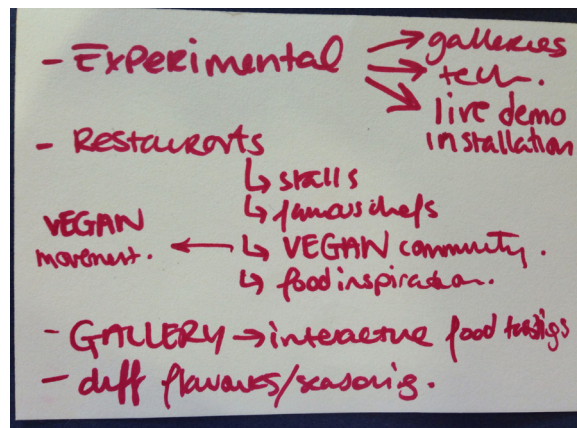 - Experimental → galleries
→ tech.
→ live demo
installation
- Restaurants
↳ stalls
↳ famous chefs
VEGAN movement. ← ↳ VEGAN community.
↳ food inspiration.
- GALLERY → interactive food tastings
- diff flavours/seasoning.